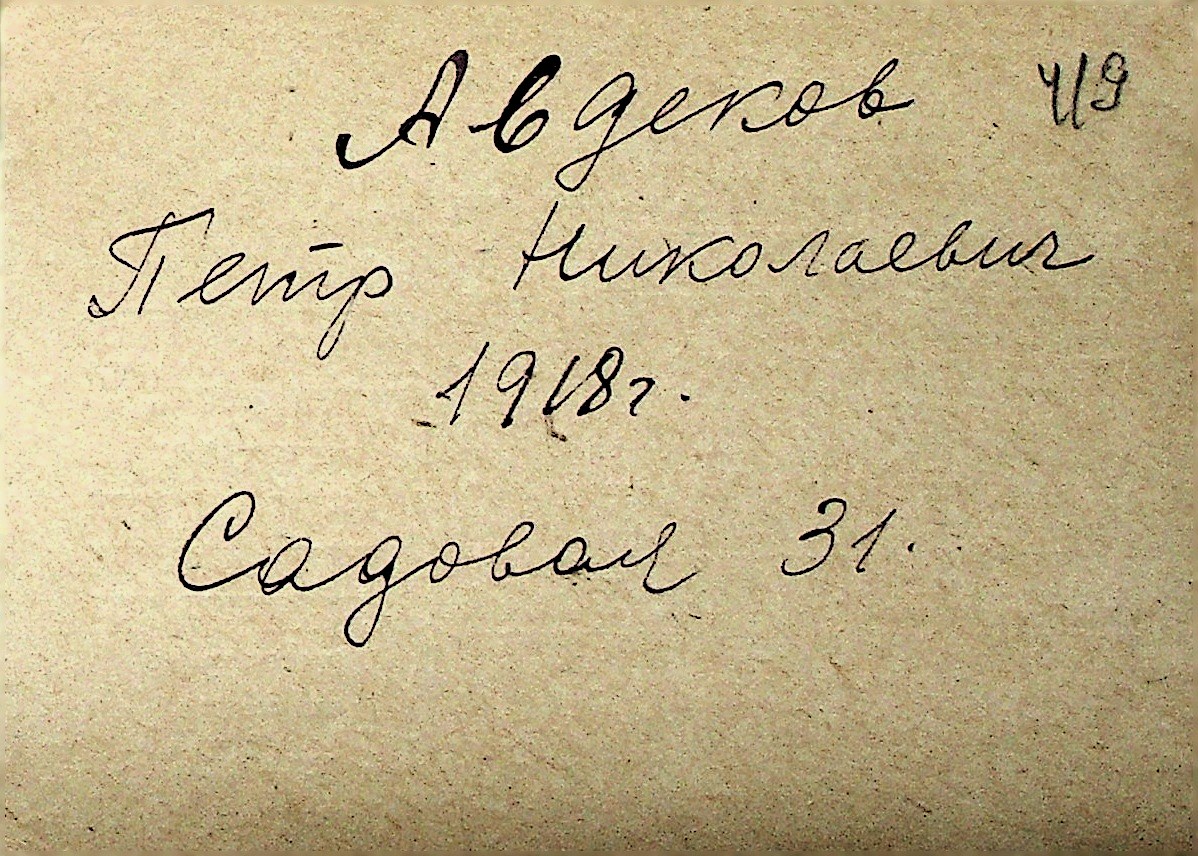 Авдеков 419
Петр Николаевич
1918г.
Садовая 31.